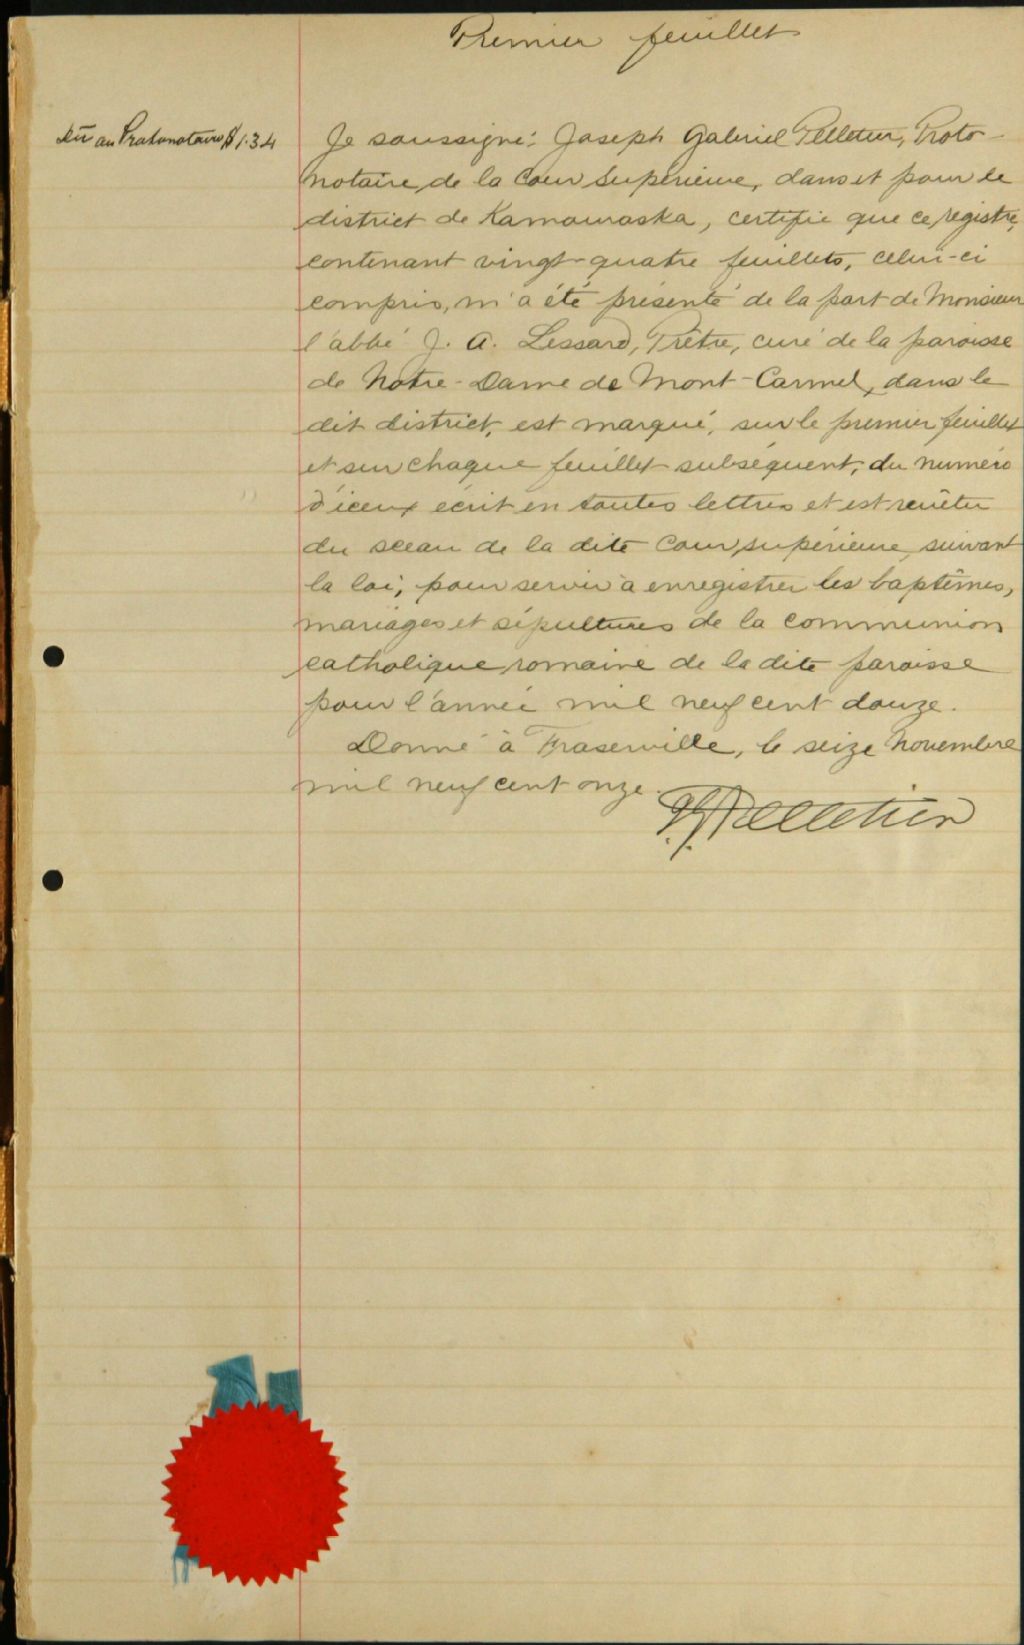 Premier feuillet
Dû au Protonotaire $1.34
Je soussigné: Joseph Gabriel Pelletier, Proto-
notaire, de la Cour Supérieure, dans et pour le
district de Kamouraska, certifie que ce registre,
contenant vingt-quatre feuillets, celui-ci
compris, m'a été présenté de la part de Monsieur
l'abbé J. A. Lessard, Prêtre, curé de la paroisse
de Notre-Dame de Mont-Carmel, dans le
dit district, est marqué, sur le premier feuillet
et sur chaque feuillet subséquent, du numéro
d'iceux écrit en toutes lettres et est revêtu
du sceau de la dite Cour supérieure, suivant
la loi, pour servir à enregistrer les baptêmes,
mariages et sépultures de la communion
catholique romaine de la dite paroisse
pour l'année mil neuf cent douze.
Donné à Fraserville, le seize Novembre
mil neuf cent onze.
J. G. Pelletier